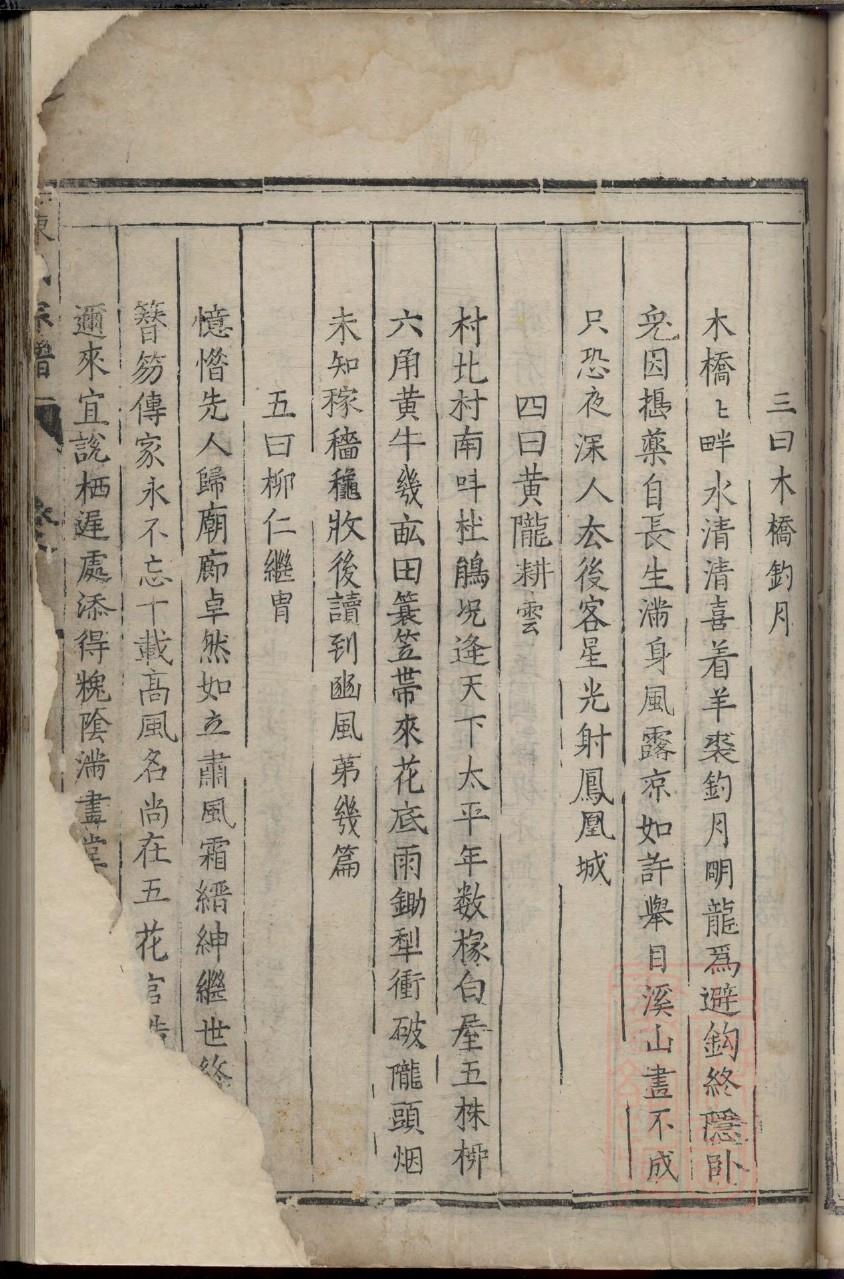 三曰木橋釣月
木橋〻畔水清清喜着羊裘釣月明龍爲避鈎終隱卧
兎因搗藥自長生滿身風露凉如許舉目溪山畫不成
只恐夜深人厺後客星光射鳳凰城
四曰黄隴耕雲
村北村南呌杜鵑况逢天下太平年数椽白屋五株柳
六角黄牛幾畝田簑笠帶來花底雨鋤犁衝破隴頭烟
未知稼穡穐收後讀到豳風苐幾篇
五曰柳仁繼胄
憶惜先人歸廟廊卓然如立肅風霜縉紳繼世終
簪笏傳家永不忘十載髙風名尚在五花官誥
邇來宜說栖遲處添得槐陰滿畫堂
陳氏宗譜